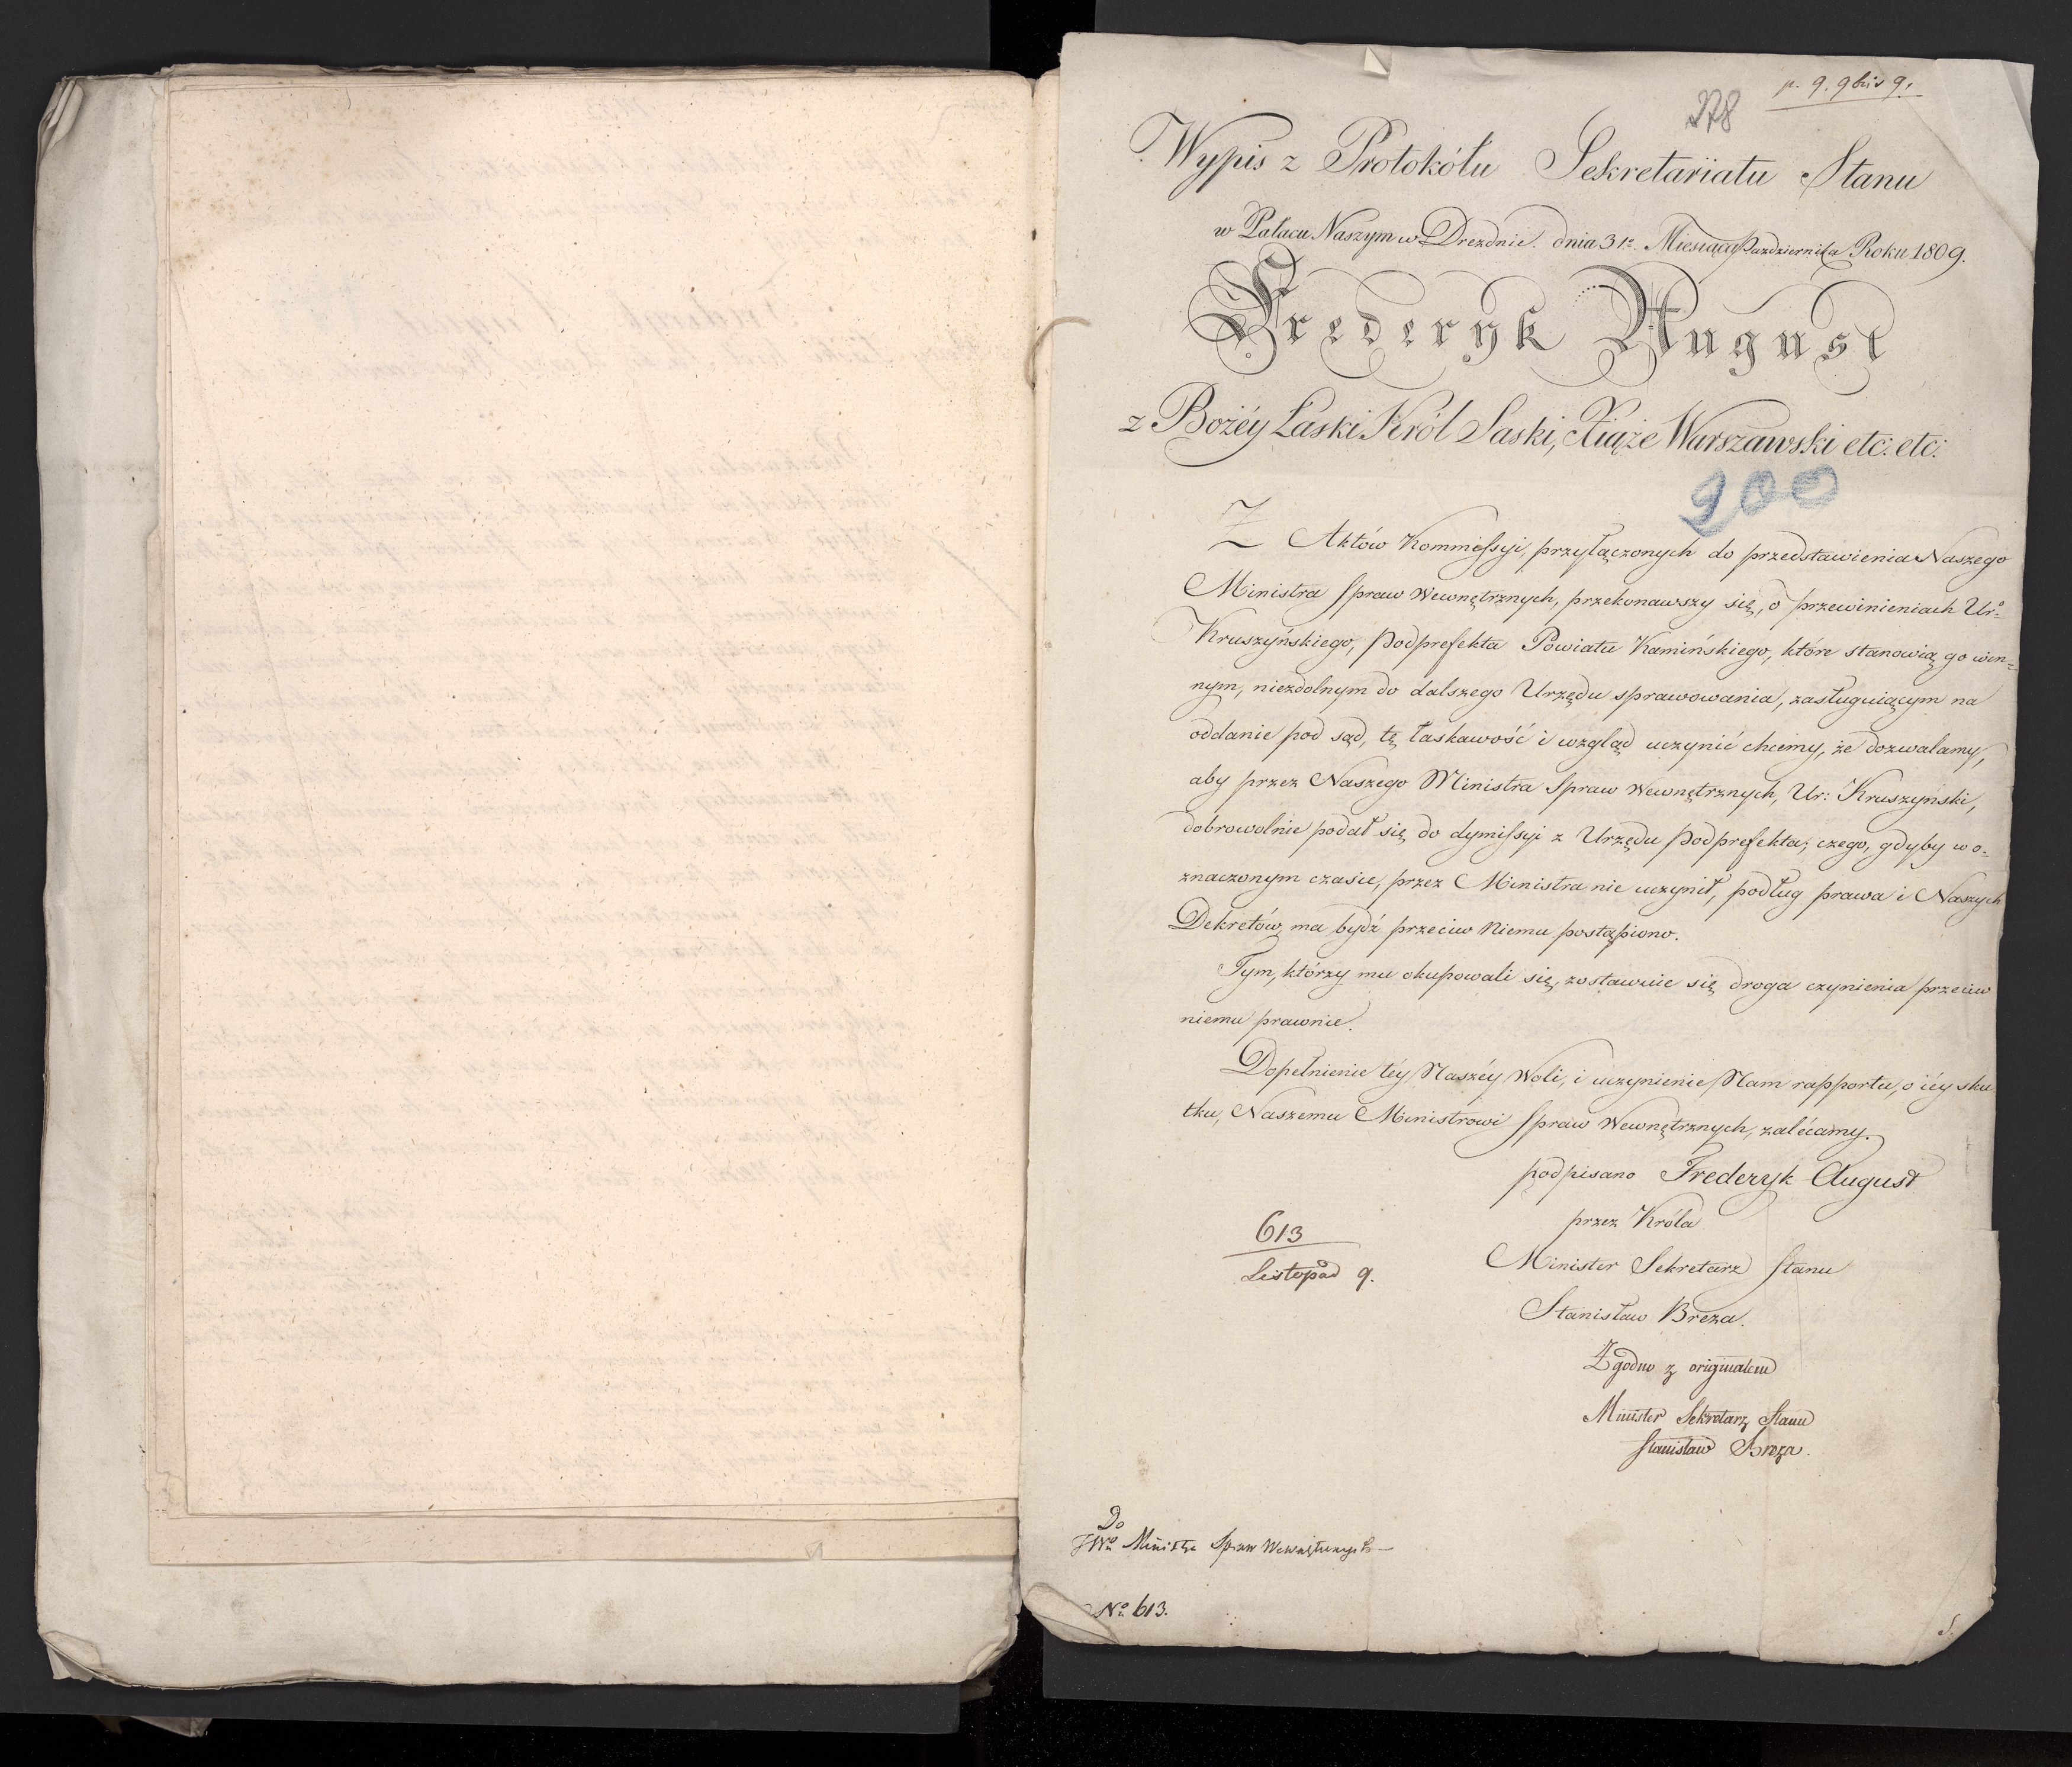 p. 9. 9bris 9.
278
Wypis z Protokółu Sekretariatu Stanu
w Pałacu Naszym w Dreznie. dnia 31º. Miesiąca Pazdziernika Roku 1809.
Frederyk August
z Bożéy Łaski Król Saski, Xiąże Warszawski etc: etc:
200
Z Aktów Kommissyi, przyłączonych do przedstawienia Naszego
Ministra Spraw Wewnętrznych, przekonawszy się, o przewinieniach Urº
Kruszyńskiego, Podprefekta Powiatu Kamińskiego, które stanowią go win=
nym, niezdolnym do dalszego Urzędu sprawowania, zasługuiącym na
oddanie pod sąd, tę łaskawość i wzgląd uczynić chcemy, że dozwalamy,
aby przez Naszego Ministra Spraw Wewnętrznych, Ur: Kruszyński,
dobrowolnie podał się do dymissyi z Urzędu Podprefekta; czego, gdyby w o=
znaczonym czasie, przez Ministra nie uczynił, podług prawa i Naszych
Dekretów, ma bydź przeciw Niemu postąpiono.
Tym, którzy mu okupowali się, zostawuie się droga czynienia przeciw
niemu prawnie.
Dopełnienie téy Naszéy Woli, i uczynienie Nam rapportu, o iéy sku
tku, Naszemu Ministrowi Spraw Wewnętrznych, zalécamy.
podpisano Frederyk August
przez Króla
Minister Sekretarz Stanu
Stanisław Breza.
613
Listopad 9.
Zgodno z originalem
Minister Sekretarz Stanu
Stanisław Breza.
Do
JWº Ministra Spraw Wewnętrznych
Nº 613.